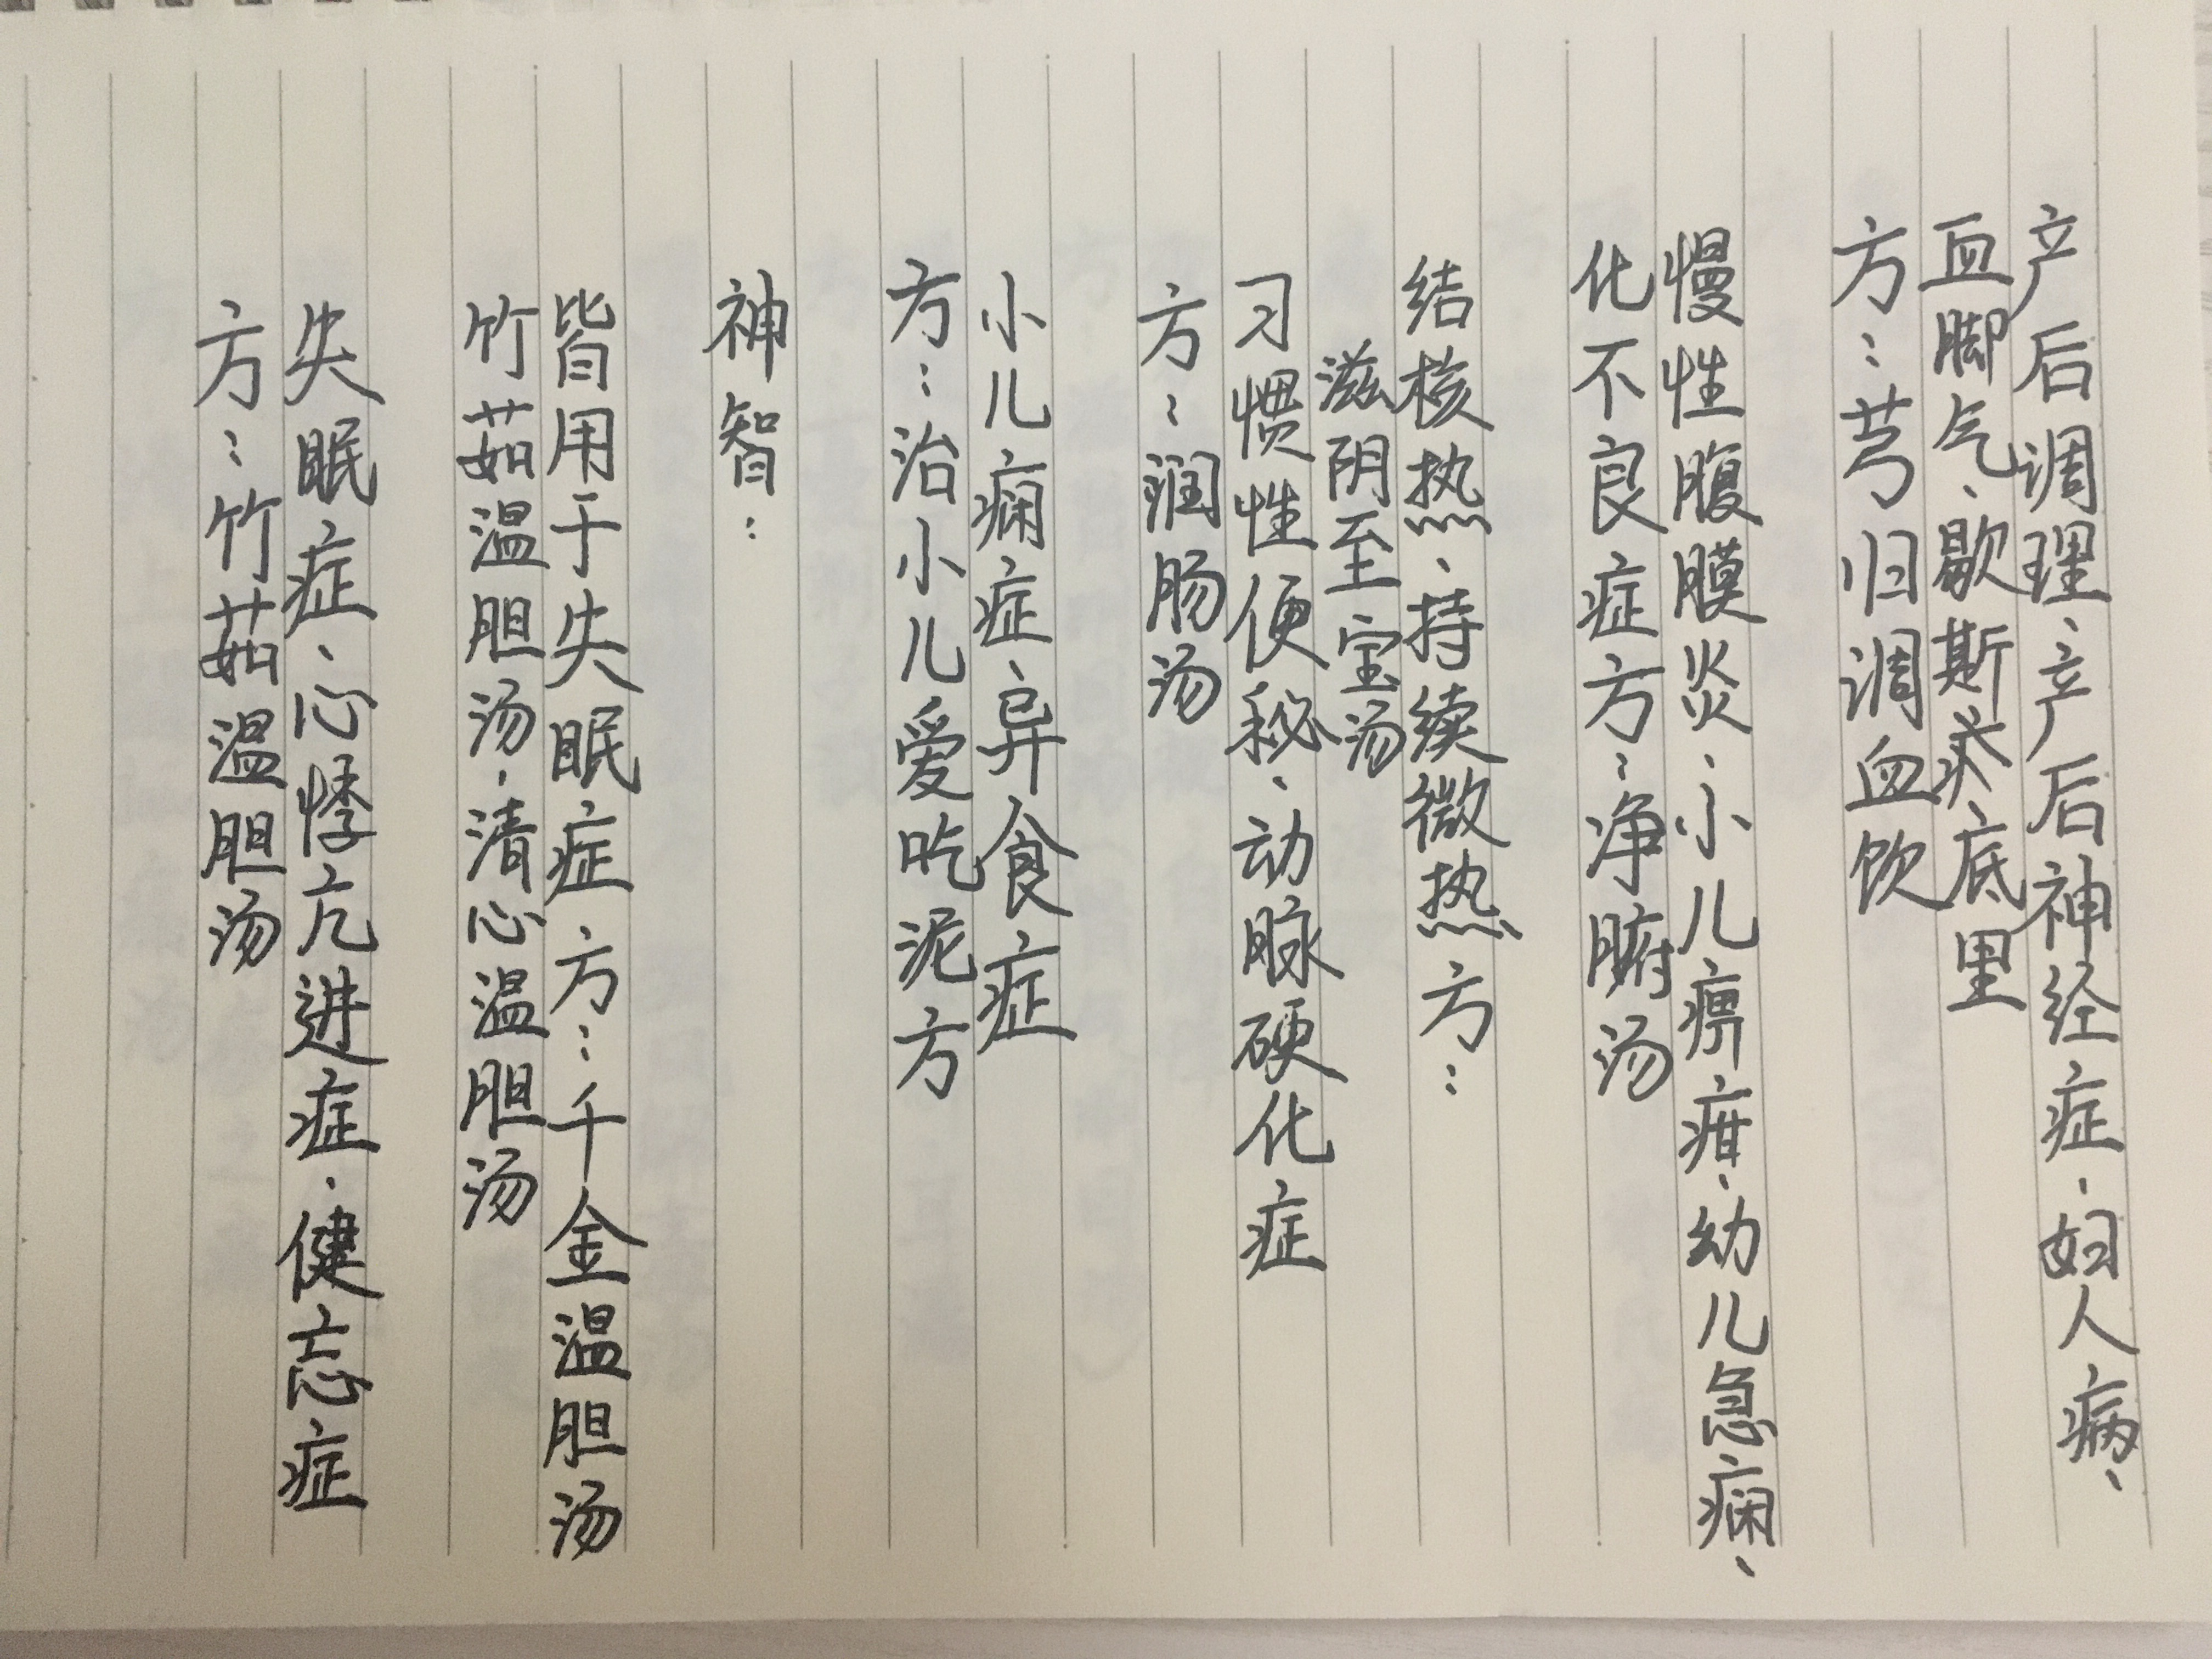 产后调理、产后神经症、妇人病、
血脚气、歇斯底里
方：芎归调血饮
慢性腹膜炎、小儿痨疳、幼儿急痫、
化不良症方：净腑汤
结核热、持续微热方：
滋阴至宝汤
习惯性便秘、动脉硬化症
方：润肠汤
小儿痫症、异食症
方：治小儿爱吃泥方
神智：
皆用于失眠症方：千金温胆汤
竹茹温胆汤、清心温胆汤
失眠症、心悸亢进症、健忘症
方：竹茹温胆汤